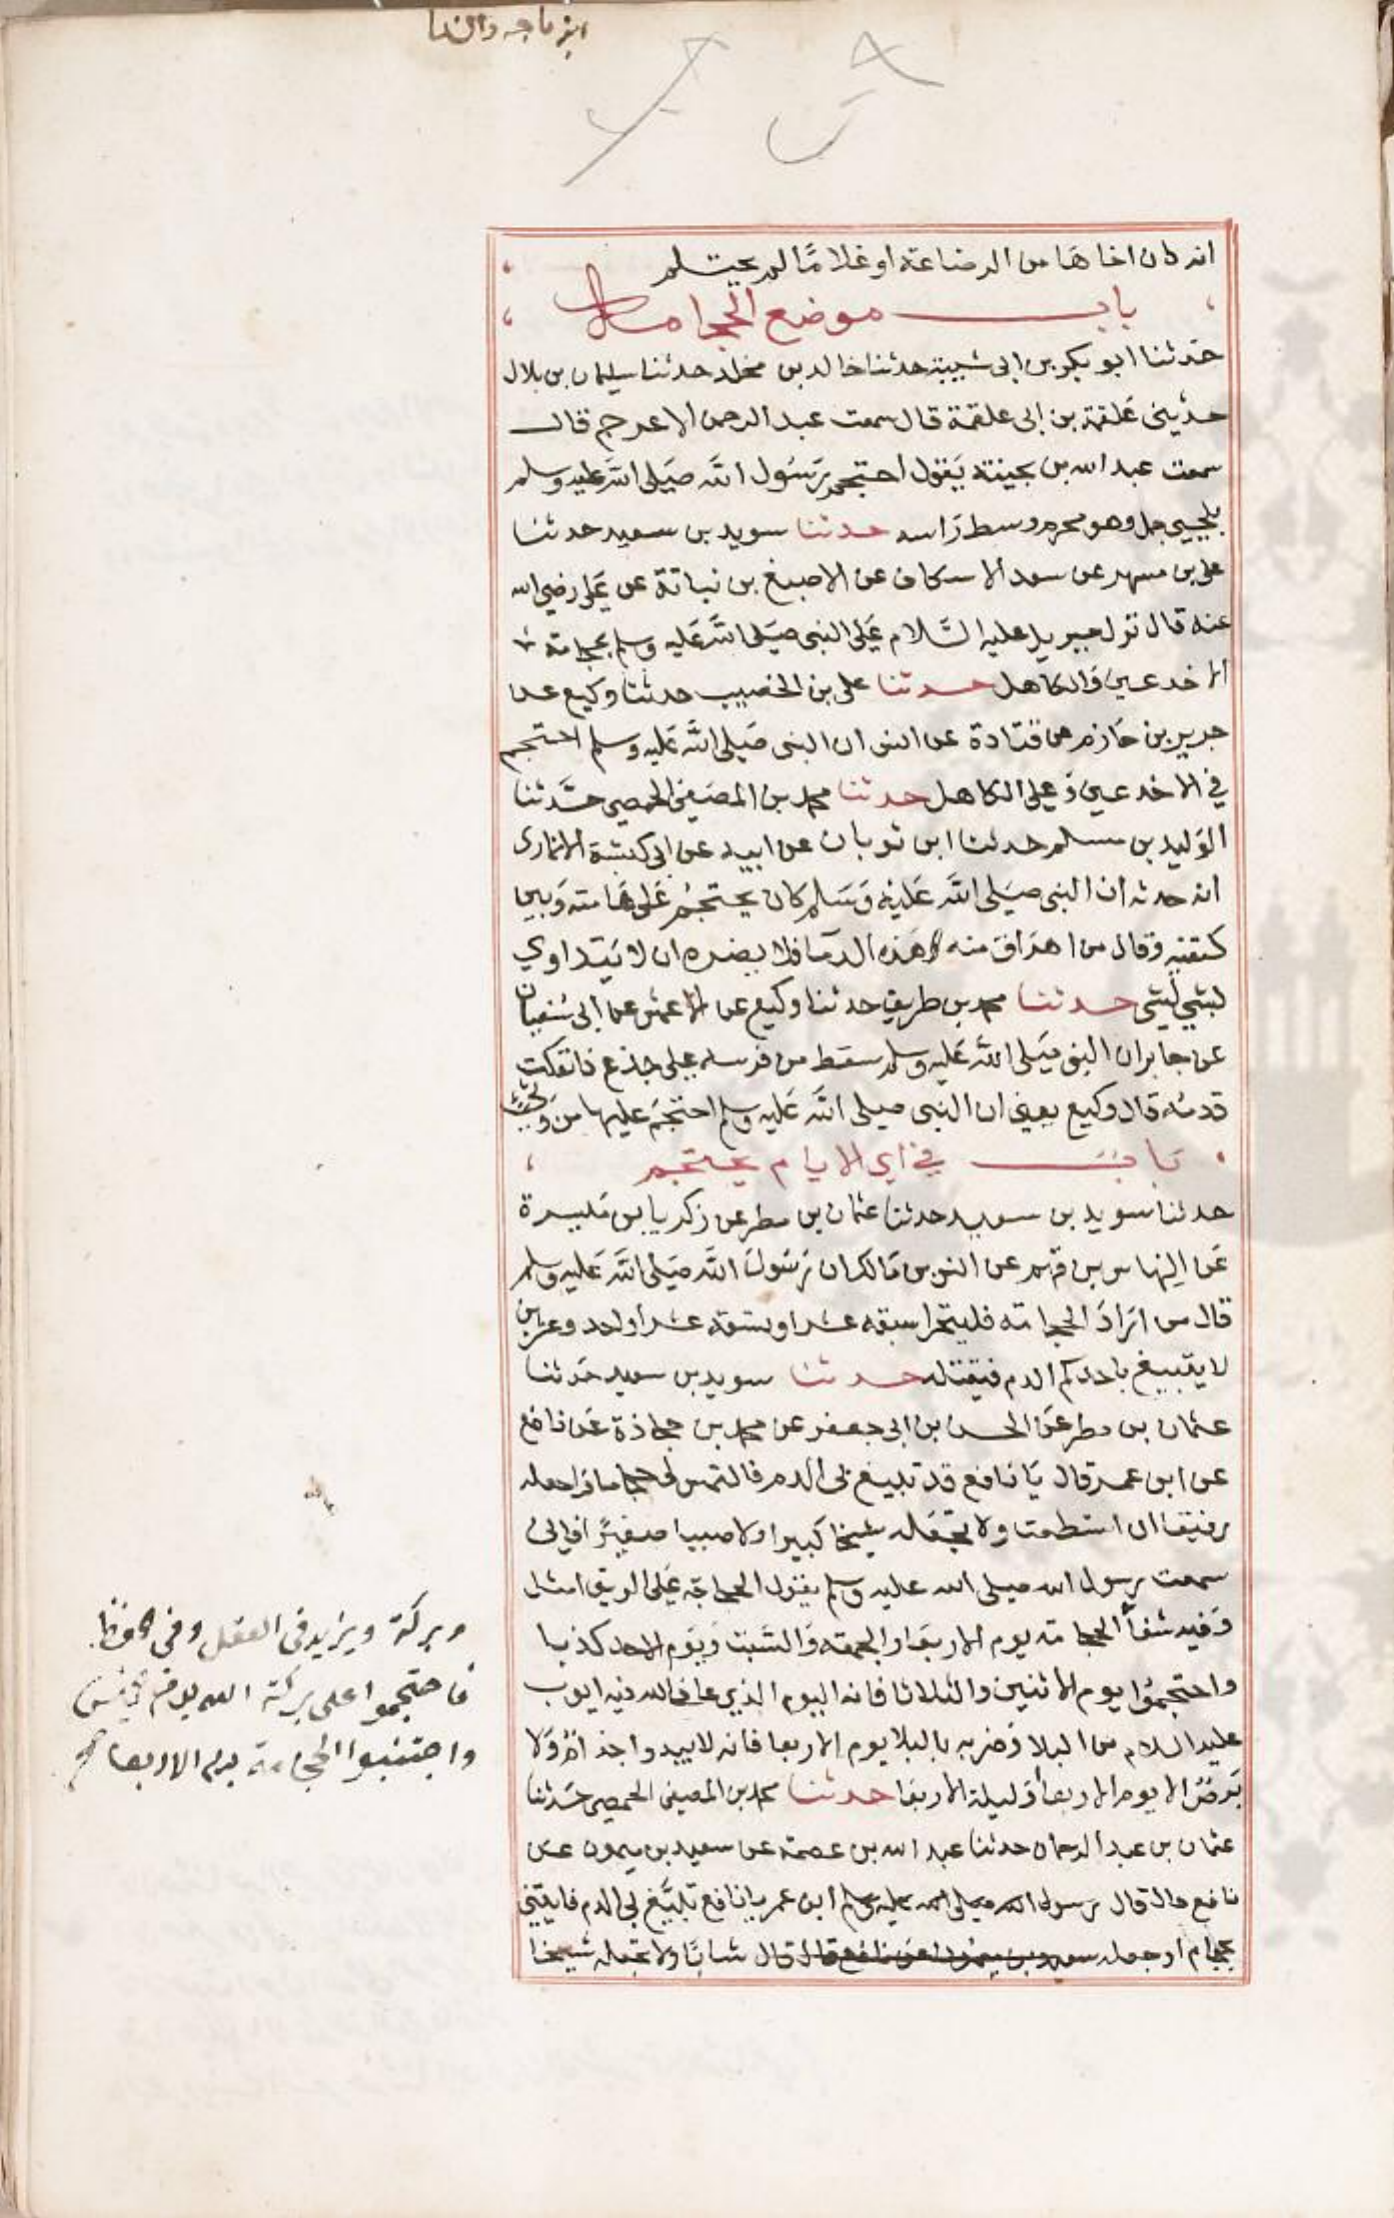 ابن ماجه والفتا
انه كان اخاها من الرضاعة او غلامًا لم يحتلم
باب موضع الحجامة
حدثنا ابو بكر بن ابى شيبة حدثنا خالد بن مخلد حدثنا سليمان بن بلال
حدثينى علقمة بن ابى علقمة قال سمعت عبد الرحمن الاعرج قال
سمعت عبد الله بن بحينة يَقول احتجم رَسُول الله صَلى الله عليه وسلم
بلحيي جمل وهو محرم وسط رَاسه حدثنا سويد بن سعيد حدثنا
على بن مسهر عن سعد الاسكاف عن الاصبغ بن نباتة عن عَلى رضى الله
عنه قال نزل جبريل عليه السَّلام عَلى النبى صَلى الله عَليه وسلم بحجامة
الاخدعين وَالكاهل حدثنا على بن الخصيب حدثنا وكيع عن
جرير بن حَازم عن قتادة عن انس ان النبى صَلى الله عَليه وسلم احتجم
في الاخدعين وَعلى الكاهل حدثنا محمد بن المصَفى الحمصي حدَّثنا
الوَليد بن مسلم حدثنا ابن ثوبان عن ابيه عن ابى كبشة الانمارى
انه حدثه ان النبى صَلى الله عَليْه وَسَلم كان يحتجمُ عَلى هَامته وَبين
كتفيه وقال من اهراق منه هذه الدمَا فلا يضره ان لا يَتداوي
لبشي لشى حدثنا محمد بن طريف حدثنا وكيع عن الاعمش عن ابى سُفيان
عن جابر ان النبى صَلى اللهُ عَليه وسلم سقط من فرسه على جذع فانفكت
قدمُه قال وكيع يعنى ان النبى صلى الله عَليه وسلم احتجمَ عليها من وَثيٍ
بَابُ في اى الايام يحتجم
حدثنا سويد بن سعيد حدثنا عثمان بن مطر عن زكريا بن مَيسرة
عَن النهاس بن قهم عن انس بن مَالك ان رَسُولَ الله صَلى الله عَليه وسلم
قال من ارَادَ الحجامة فليتحرا سبعة عشر او تسعة عشر او احد وعشرين
لا يتبيغ باحدكم الدم فيقتله حدثنا سويد بن سعيد حَدثنا
عثمان بن مطر عَن الحسن بن ابى جعفر عن محمد بن جحادة عَن نافع
عن ابن عمر قال يَا نافع قد تبيغ بى الدم فالتمس لى حجاما واجعله
رفيقا ان استطعت ولا تجعَله شيخا كبيرا ولا صبيا صغيرًا فإنى
سمعت رسول الله صلى الله عليه وسلم يقول الحجامة عَلى الريق امثل
وَفيه شفأ الحجامة يوم الاربعَا والجمعة وَالسَّبت وَيَوم الاحد كذبا
واحتجمُوا يوم الاثنين والثلاثا فانه اليوم الذي عافا الله فيه ايوب
عليه السلام من البلا وَضربه بالبلا يوم الاربعا فانه لا يبدوا جذامٌ وَلا
بَرصٌ الا يوم الاربعأ وَليلة الاربعَا حدثنا محمد بن المصفى الحمصى حَدثنا
عثمان بن عبد الرحمان حدثنا عبد الله بن عصمة عن سعيد بن ميمون عن
نافع قال قال رسول الله صلى الله عليه وسلم ابن عمر يا نافع تبيَّغ بى الدم فايتني
بحجام او جعله سعيد بن ميمون عن نافع قال قال شابًا ولا تجعله شيخا
وبركة ويزيد فى العقل وفى الحفظ
فاحتجموا على بركة الله يوم الخميس
واجتنبوا الحجامة يوم الاربعا صح